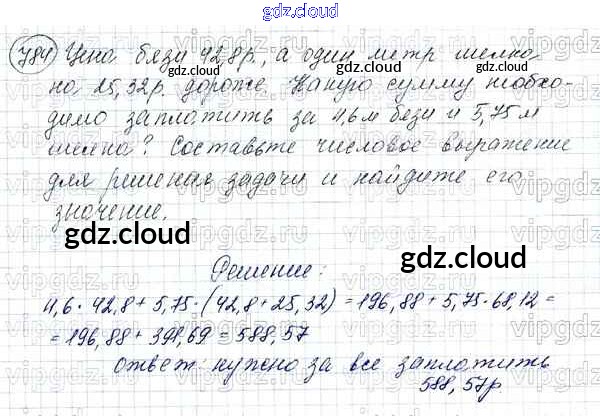 gdz.cloud
784 Цена бязи 42,8р., а один метр шелка
на 25,32р. дороже. Какую сумму необхо-
димо заплатить за 4,6м бязи и 5,75м
шелка? Составьте числовое выражение
для решения задачи и найдите его
значение.
Решение:
4,6 · 42,8 + 5,75 · (42,8 + 25,32) = 196,88 + 5,75 · 68,12 =
= 196,88 + 391,69 = 588,57
ответ: нужно за все заплатить
588,57р.